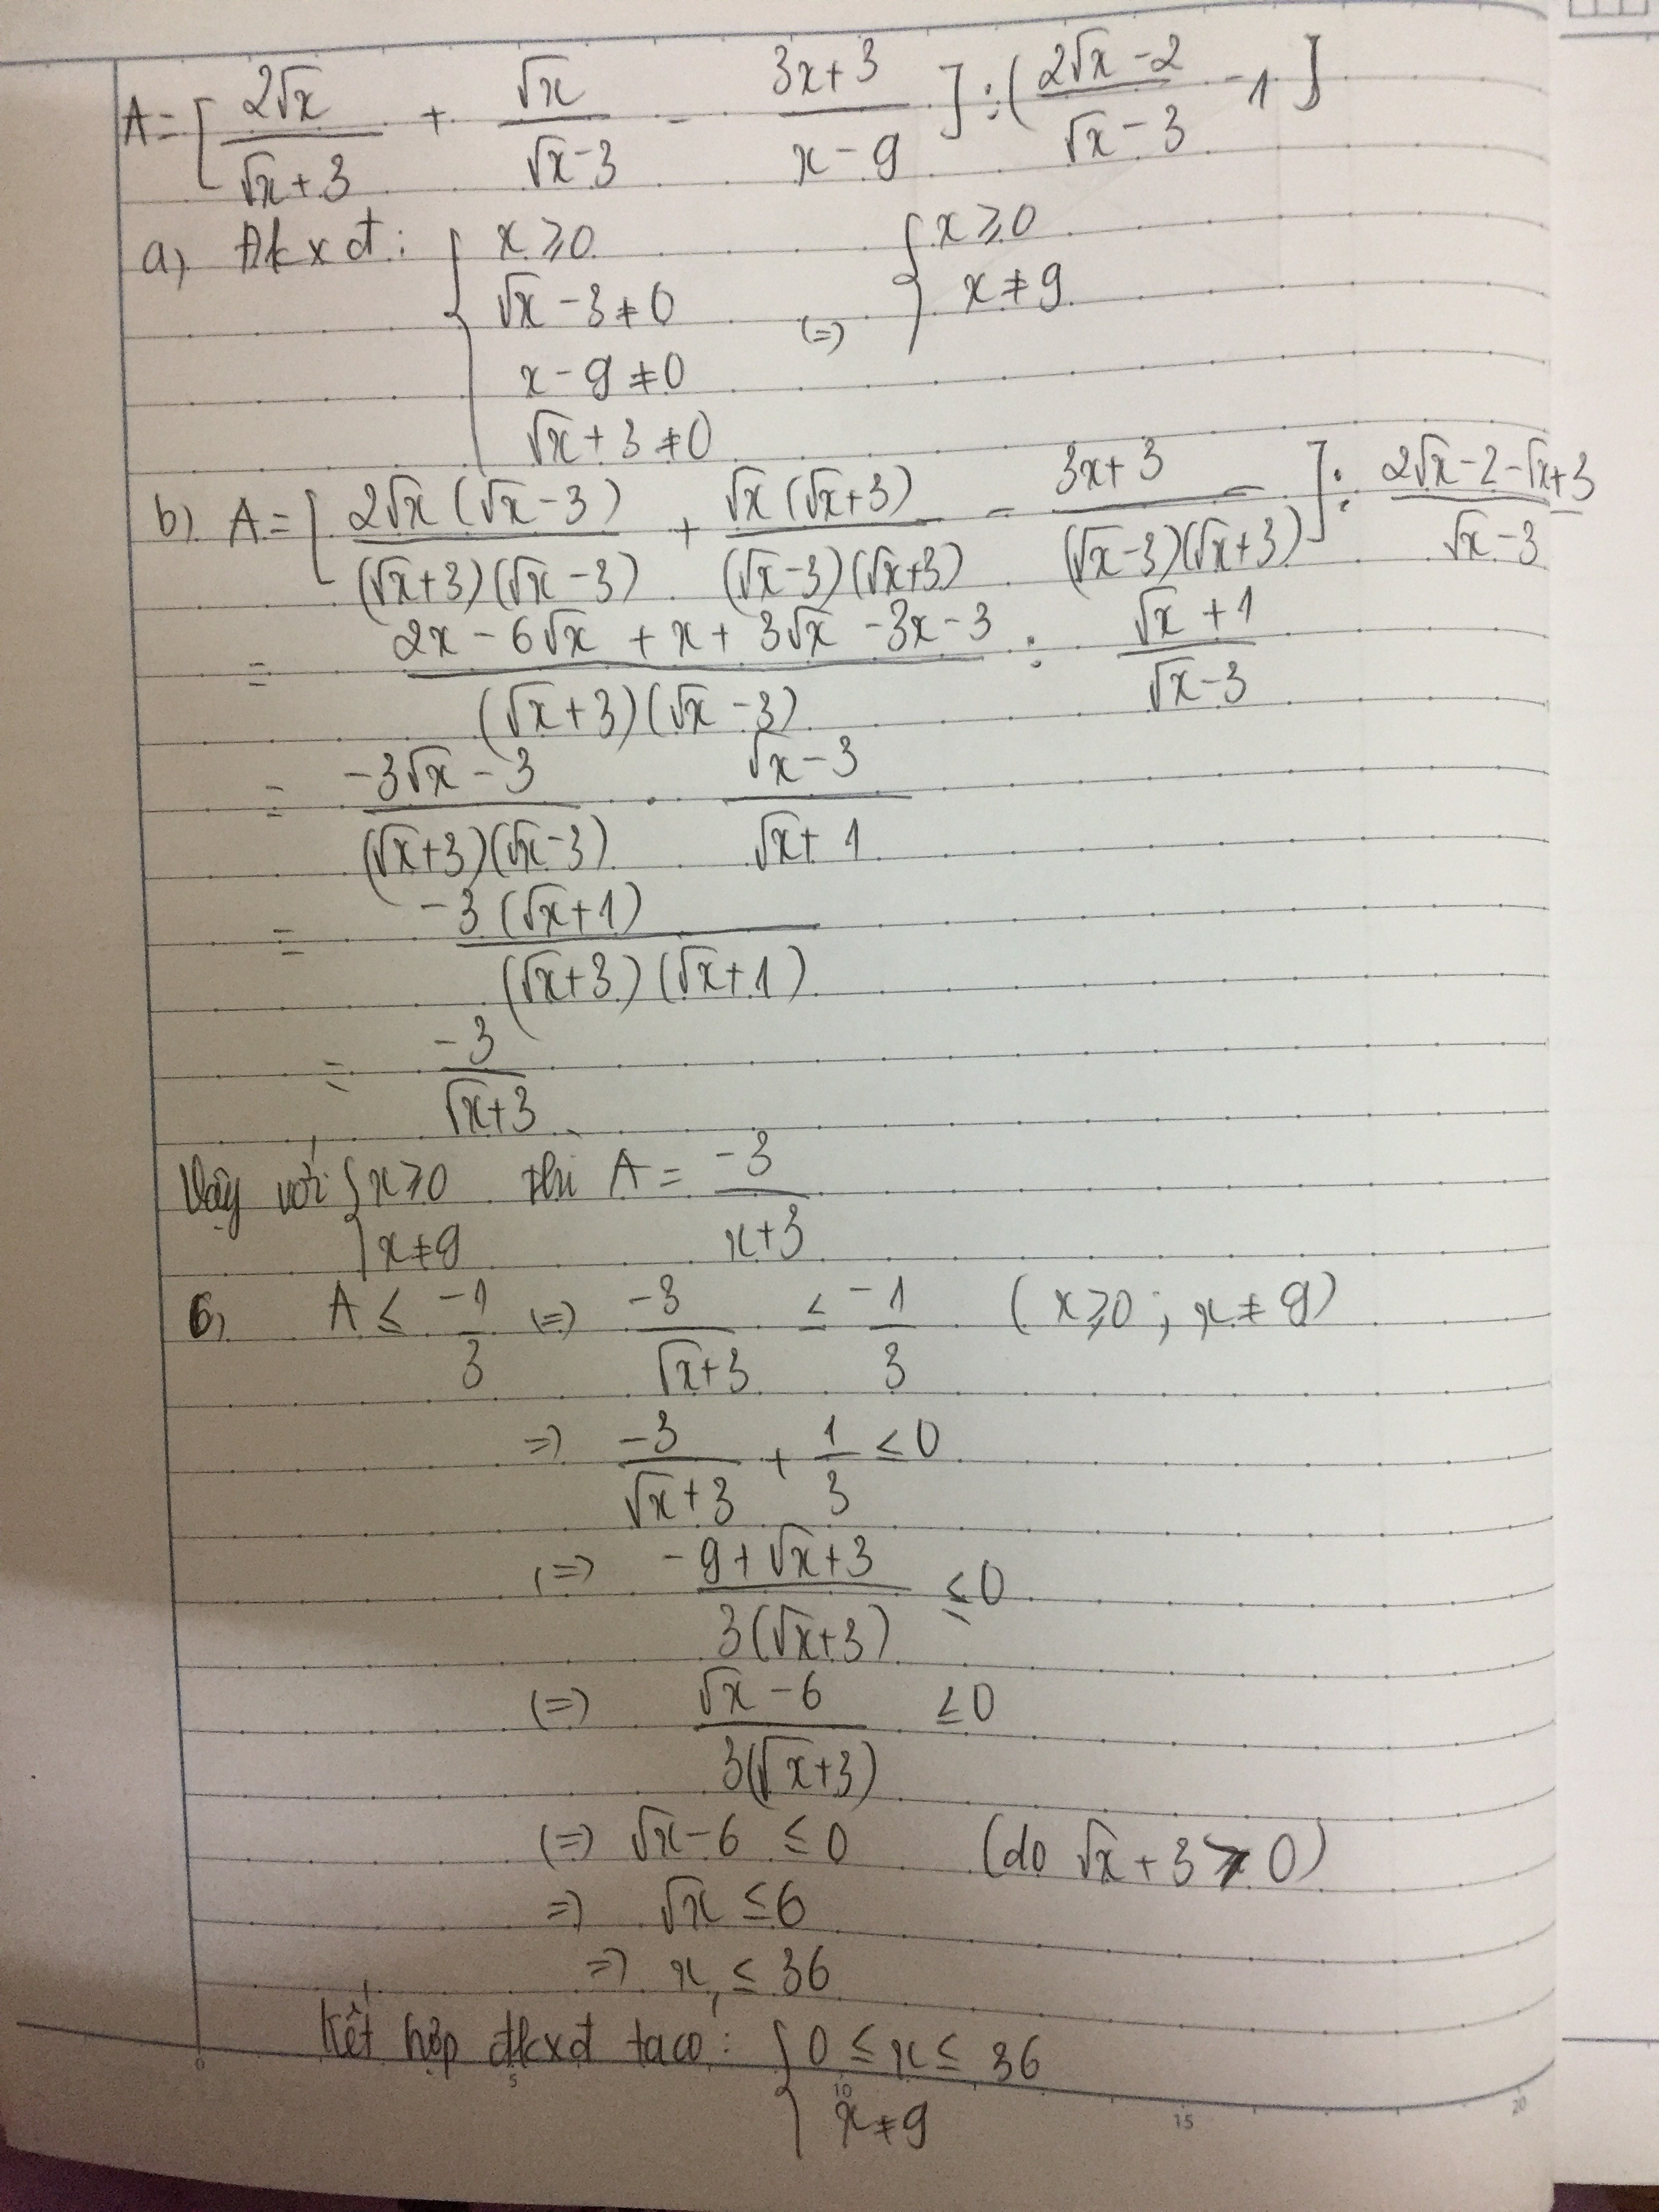 A = [ 2√x/(√x+3) + √x/(√x-3) - (3x+3)/(x-9) ] : ( (2√x-2)/(√x-3) - 1 ]
a) Đkxđ: { x ≥ 0 (=) { x ≥ 0
√x - 3 ≠ 0 x ≠ 9
x - 9 ≠ 0
√x + 3 ≠ 0
b) A = [ 2√x(√x-3)/((√x+3)(√x-3)) + √x(√x+3)/((√x-3)(√x+3)) - (3x+3)/((√x-3)(√x+3)) ] : (2√x-2-√x+3)/(√x-3)
= (2x - 6√x + x + 3√x - 3x - 3)/((√x+3)(√x-3)) : (√x+1)/(√x-3)
= (-3√x - 3)/((√x+3)(√x-3)) . (√x-3)/(√x+1)
= -3(√x+1)/((√x+3)(√x+1))
= -3/(√x+3)
Vậy với { x ≥ 0 thì A = -3/(x+3)
x ≠ 9
c, A ≤ -1/3 (=) -3/(√x+3) ≤ -1/3 (x ≥ 0 ; x ≠ 9)
=) -3/(√x+3) + 1/3 ≤ 0
(=) (-9+√x+3)/(3(√x+3)) ≤ 0
(=) (√x-6)/(3(√x+3)) ≤ 0
(=) √x - 6 ≤ 0 (do √x + 3 > 0)
=) √x ≤ 6
=) x ≤ 36
Kết hợp đkxđ ta có: { 0 ≤ x ≤ 36
x ≠ 9
0 5 10 15 20